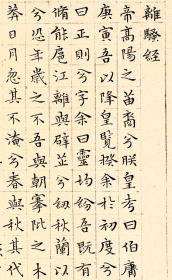 離騷經
帝高陽之苗裔兮朕皇考曰伯庸
庚寅吾以降皇覽揆余於初度兮
曰正則兮字余曰靈均紛吾既有
脩能扈江離與辟芷兮紉秋蘭以
兮恐年歲之不吾與朝搴阰之木
莽日月忽其不淹兮春與秋其代